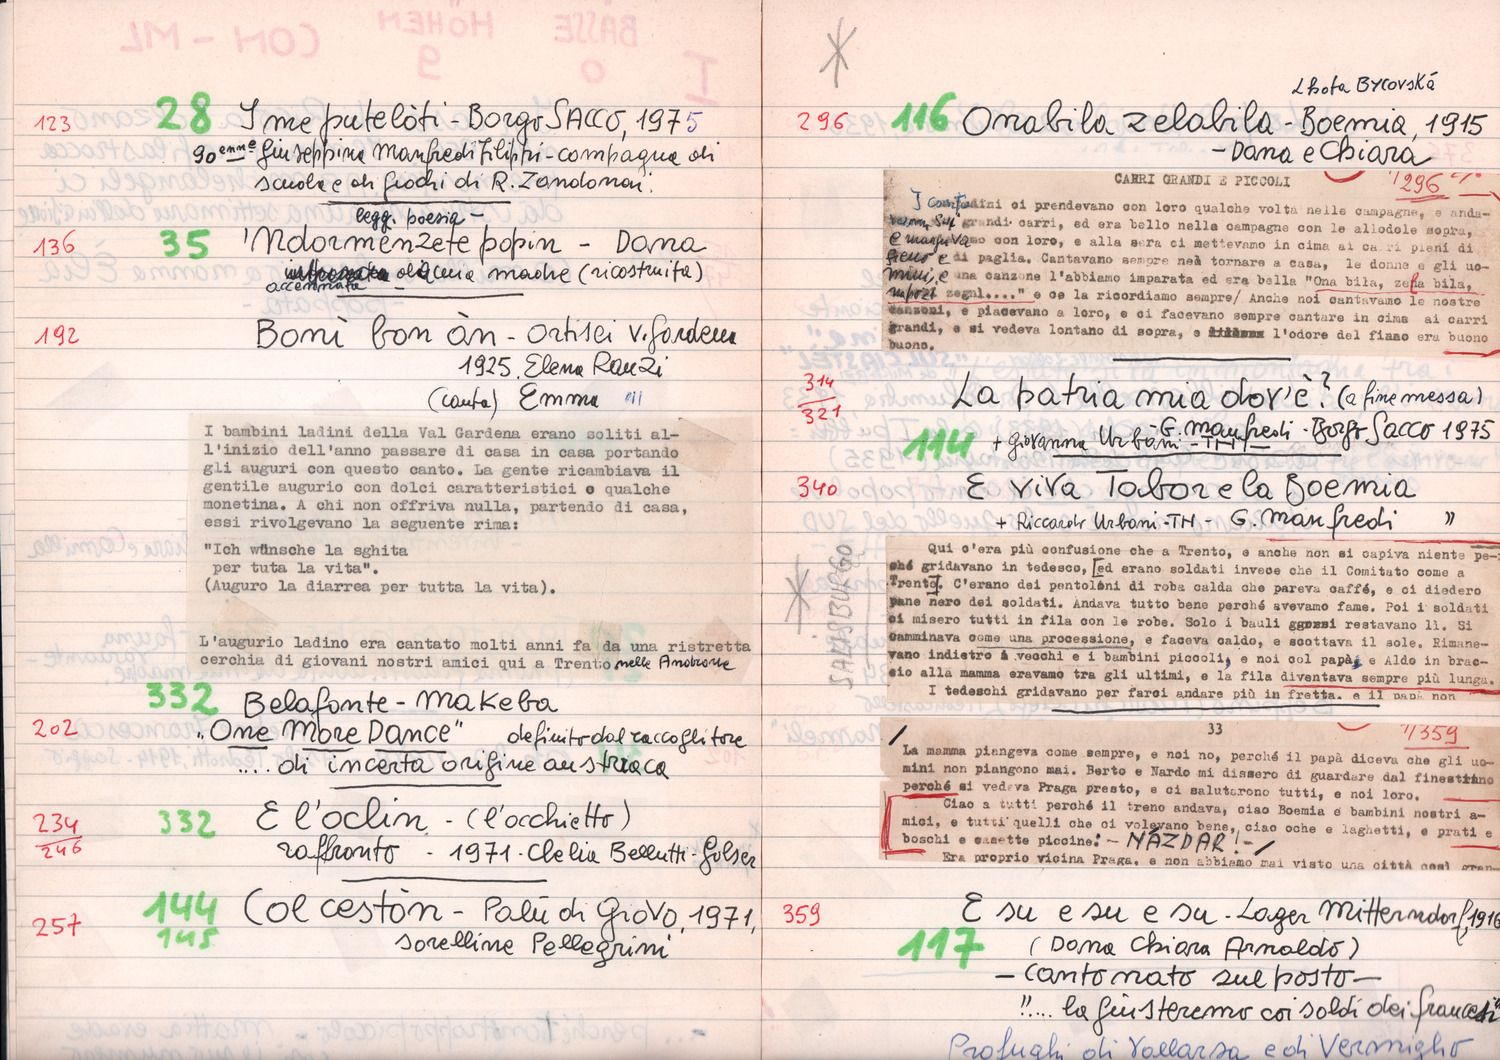 123 28 I me putelòti - Borgo SACCO, 1975
90enne Giuseppina Manfredi Filippi - compagna di
scuola e di giochi di R. Zandonai.
legg. poesia -
136 35 'Ndormenzete popin - Dana
dalla madre (ricostruita)
accennata
192 Bonì bon àn - Ortisei V. Gardena
1925. Elena Ranzi
(canta) Emma "
I bambini ladini della Val Gardena erano soliti al-
l'inizio dell'anno passare di casa in casa portando
gli auguri con questo canto. La gente ricambiava il
gentile augurio con dolci caratteristici o qualche
monetina. A chi non offriva nulla, partendo di casa,
essi rivolgevano la seguente rima:
"Ich wünsche la sghita
per tuta la vita".
(Auguro la diarrea per tutta la vita).
L'augurio ladino era cantato molti anni fa da una ristretta
cerchia di giovani nostri amici qui a Trento nelle
332 Belafonte - Makeba
202 "One More Dance" definito dal raccoglitore
.... di incerta origine austriaca
234 332 E l'oclin - (l'occhietto)
246 raffronto - 1971 - Clelia Bellutti - Golser
257 144 Col cestòn - Palù di Giovo, 1971,
145 sorelline Pellegrini
Lhota Bycovská
296 116 Onabila zelabila - Boemia, 1915
- Dana e Chiara
CARRI GRANDI E PICCOLI 296
I contadini ci prendevano con loro qualche volta nelle campagne, e anda-
vamo sui grandi carri, ed era bello nella campagna con le allodole sopra,
e mangiavamo con loro, e alla sera ci mettevamo in cima ai carri pieni di
fieno e di paglia. Cantavano sempre nel tornare a casa, le donne e gli uo-
mini, e una canzone l'abbiamo imparata ed era bella "Ona bila, zela bila,
zegnl...." e ce la ricordiamo sempre/ Anche noi cantavamo le nostre
canzoni, e piacevano a loro, e ci facevano sempre cantare in cima ai carri
grandi, e si vedeva lontano di sopra, e l'odore del fieno era buono
buono.
314 La patria mia dov'è? (a fine messa)
321 - G. Manfredi - Borgo Sacco 1975
114 + Giovanna Urbani - TN -
340 E viva Tabor e la Boemia
+ Riccardo Urbani - TN - G. Manfredi "
SALISBURGO
Qui c'era più confusione che a Trento, e anche non si capiva niente pe-
ché gridavano in tedesco, [ed erano soldati invece che il Comitato come a
Trento]. C'erano dei pentoloni di roba calda che pareva caffé, e ci diedero
pane nero dei soldati. Andava tutto bene perché avevamo fame. Poi i soldati
ci misero tutti in fila con le robe. Solo i bauli grossi restavano lì. Si
camminava come una processione, e faceva caldo, e scottava il sole. Rimane-
vano indietro i vecchi e i bambini piccoli, e noi col papà, e Aldo in brac-
cio alla mamma eravamo tra gli ultimi, e la fila diventava sempre più lunga.
I tedeschi gridavano per farci andare più in fretta. e il papà non
33 359
La mamma piangeva come sempre, e noi no, perché il papà diceva che gli uo-
mini non piangono mai. Berto e Nardo mi dissero di guardare dal finestrino
perché si vedeva Praga presto, e ci salutarono tutti, e noi loro.
Ciao a tutti perché il treno andava, ciao Boemia e bambini nostri a-
mici, e tutti quelli che ci volevano bene, ciao oche e laghetti, e prati e
boschi e casette piccine: - NÁZDAR! -
Era proprio vicina Praga. e non abbiamo mai visto una città così gran-
359 E su e su e su - Lager Mitterndorf, 1916
117 (Dana Chiara Arnaldo)
- cantonato sul posto -
"... la giusteremo coi soldi dei francesi"
Profughi di Vallarsa e di Vermiglio